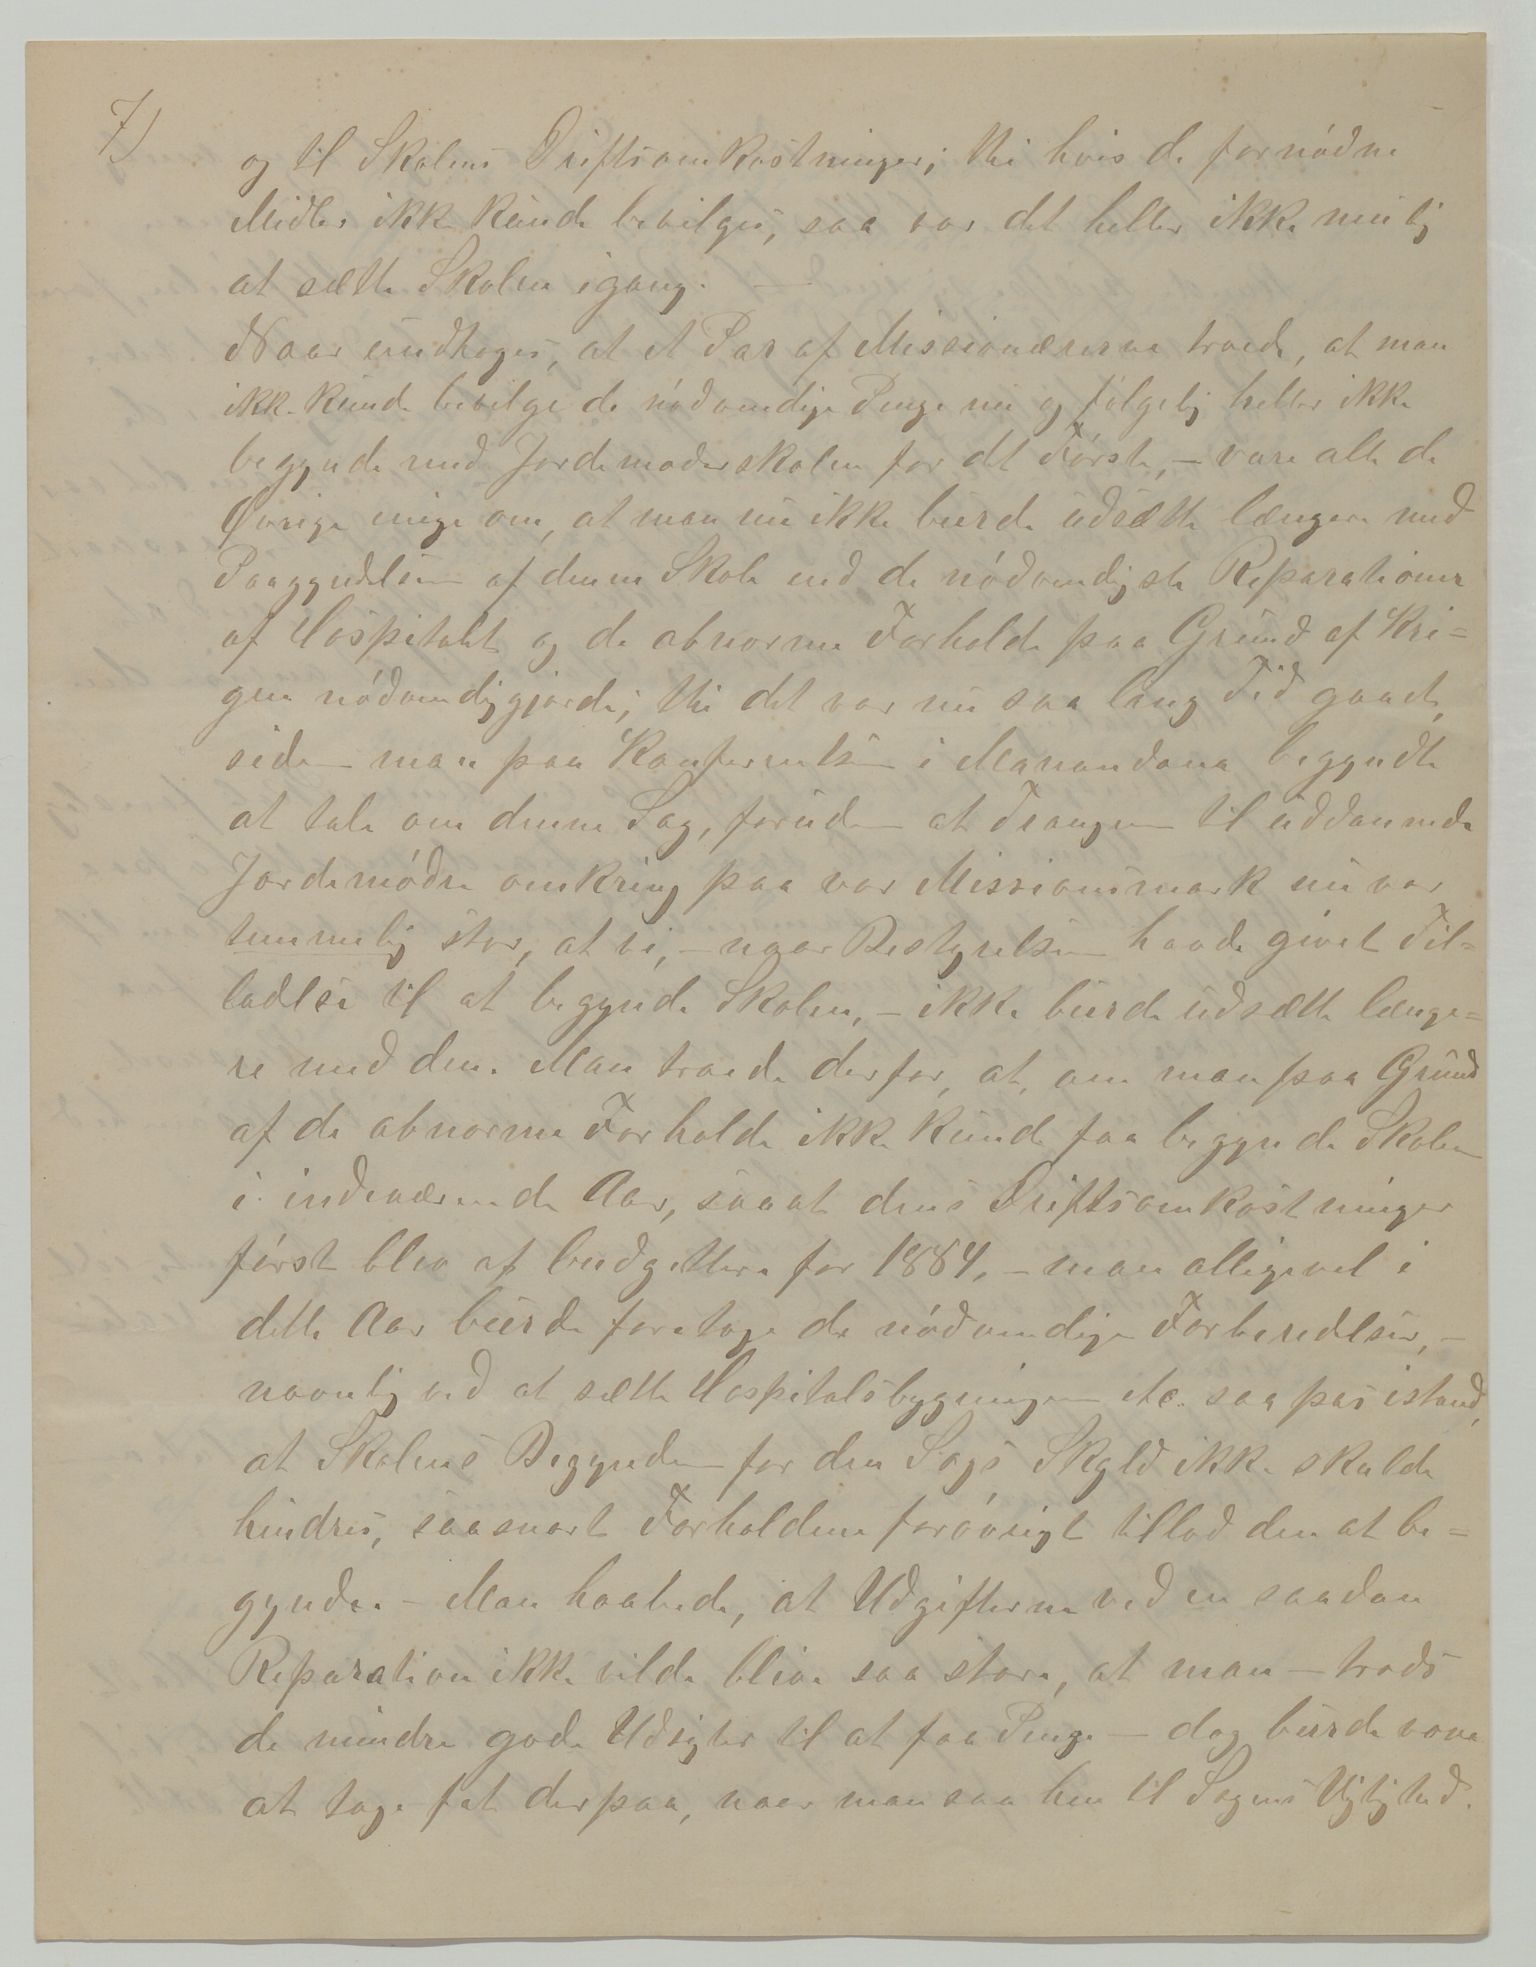 7)
og til Skolens Driftsomkostninger; thi hvis de fornödne
Midler ikke kunde bevilges, saa var det heller ikke mulig
at sætte Skolen igang. —
Naar undtages, at et Par af Missionærerne troede, at man
ikke kunde bevilge de nödvendige Penge nu og fölgelig heller ikke
begynde med Jordemoderskolen for det Förste, – vare alle de
Øvrige enige om, at man nu ikke burde udsætte længere med
Paagyndelsen af denne Skole end de nödvendigste Reparationer
af Hospitalet og de abnorme Forholde paa Grund af Kri=
gen nödvendiggjorde; thi det var nu saa lang Tid gaaet,
siden man paa Konferentsen i Masinandreina begyndte
at tale om denne Sag, foruden at Trangen til uddannede
Jordemödre omkring paa vor Missionsmark nu var
temmelig stor, at vi, – naar Bestyrelsen havde givet Til=
ladelse til at begynde Skolen, – ikke burde udsætte længe=
re med den. Man troede derfor, at, om man paa Grund
af de abnorme Forholde ikke kunde faa begynde Skolen
i indeværende Aar, saa at dens Driftsomkostninger
först blev at budgettere for 1884, – man alligevel i
dette Aar burde foretage de nödvendige Forberedelser, –
navnlig ved at sætte Hospitalsbygningen etc. saapas istand,
at Skolens Begynden for den Sags Skyld ikke skulde
hindres, saasnart Forholdene forövrigt tillod den at be=
gyndes. – Man haabede, at Udgifterne ved en saadan
Reparation ikke vilde blive saa store, at man – trods
de mindre gode Udsigter til at faa Penge – dog burde vove
at tage fat derpaa, naar man saa hen til Sagens Vigtighed.